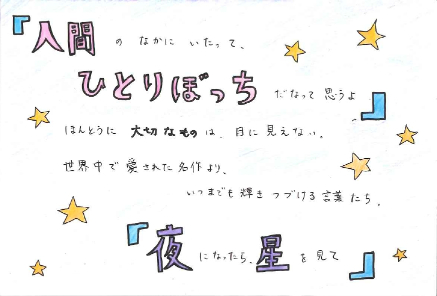 『人間のなかにいたって、
ひとりぼっちだなって思うよ』
ほんとうに大切なものは、目に見えない。
世界中で愛された名作より、
いつまでも輝きつづける言葉たち。
『夜になったら、星を見て』